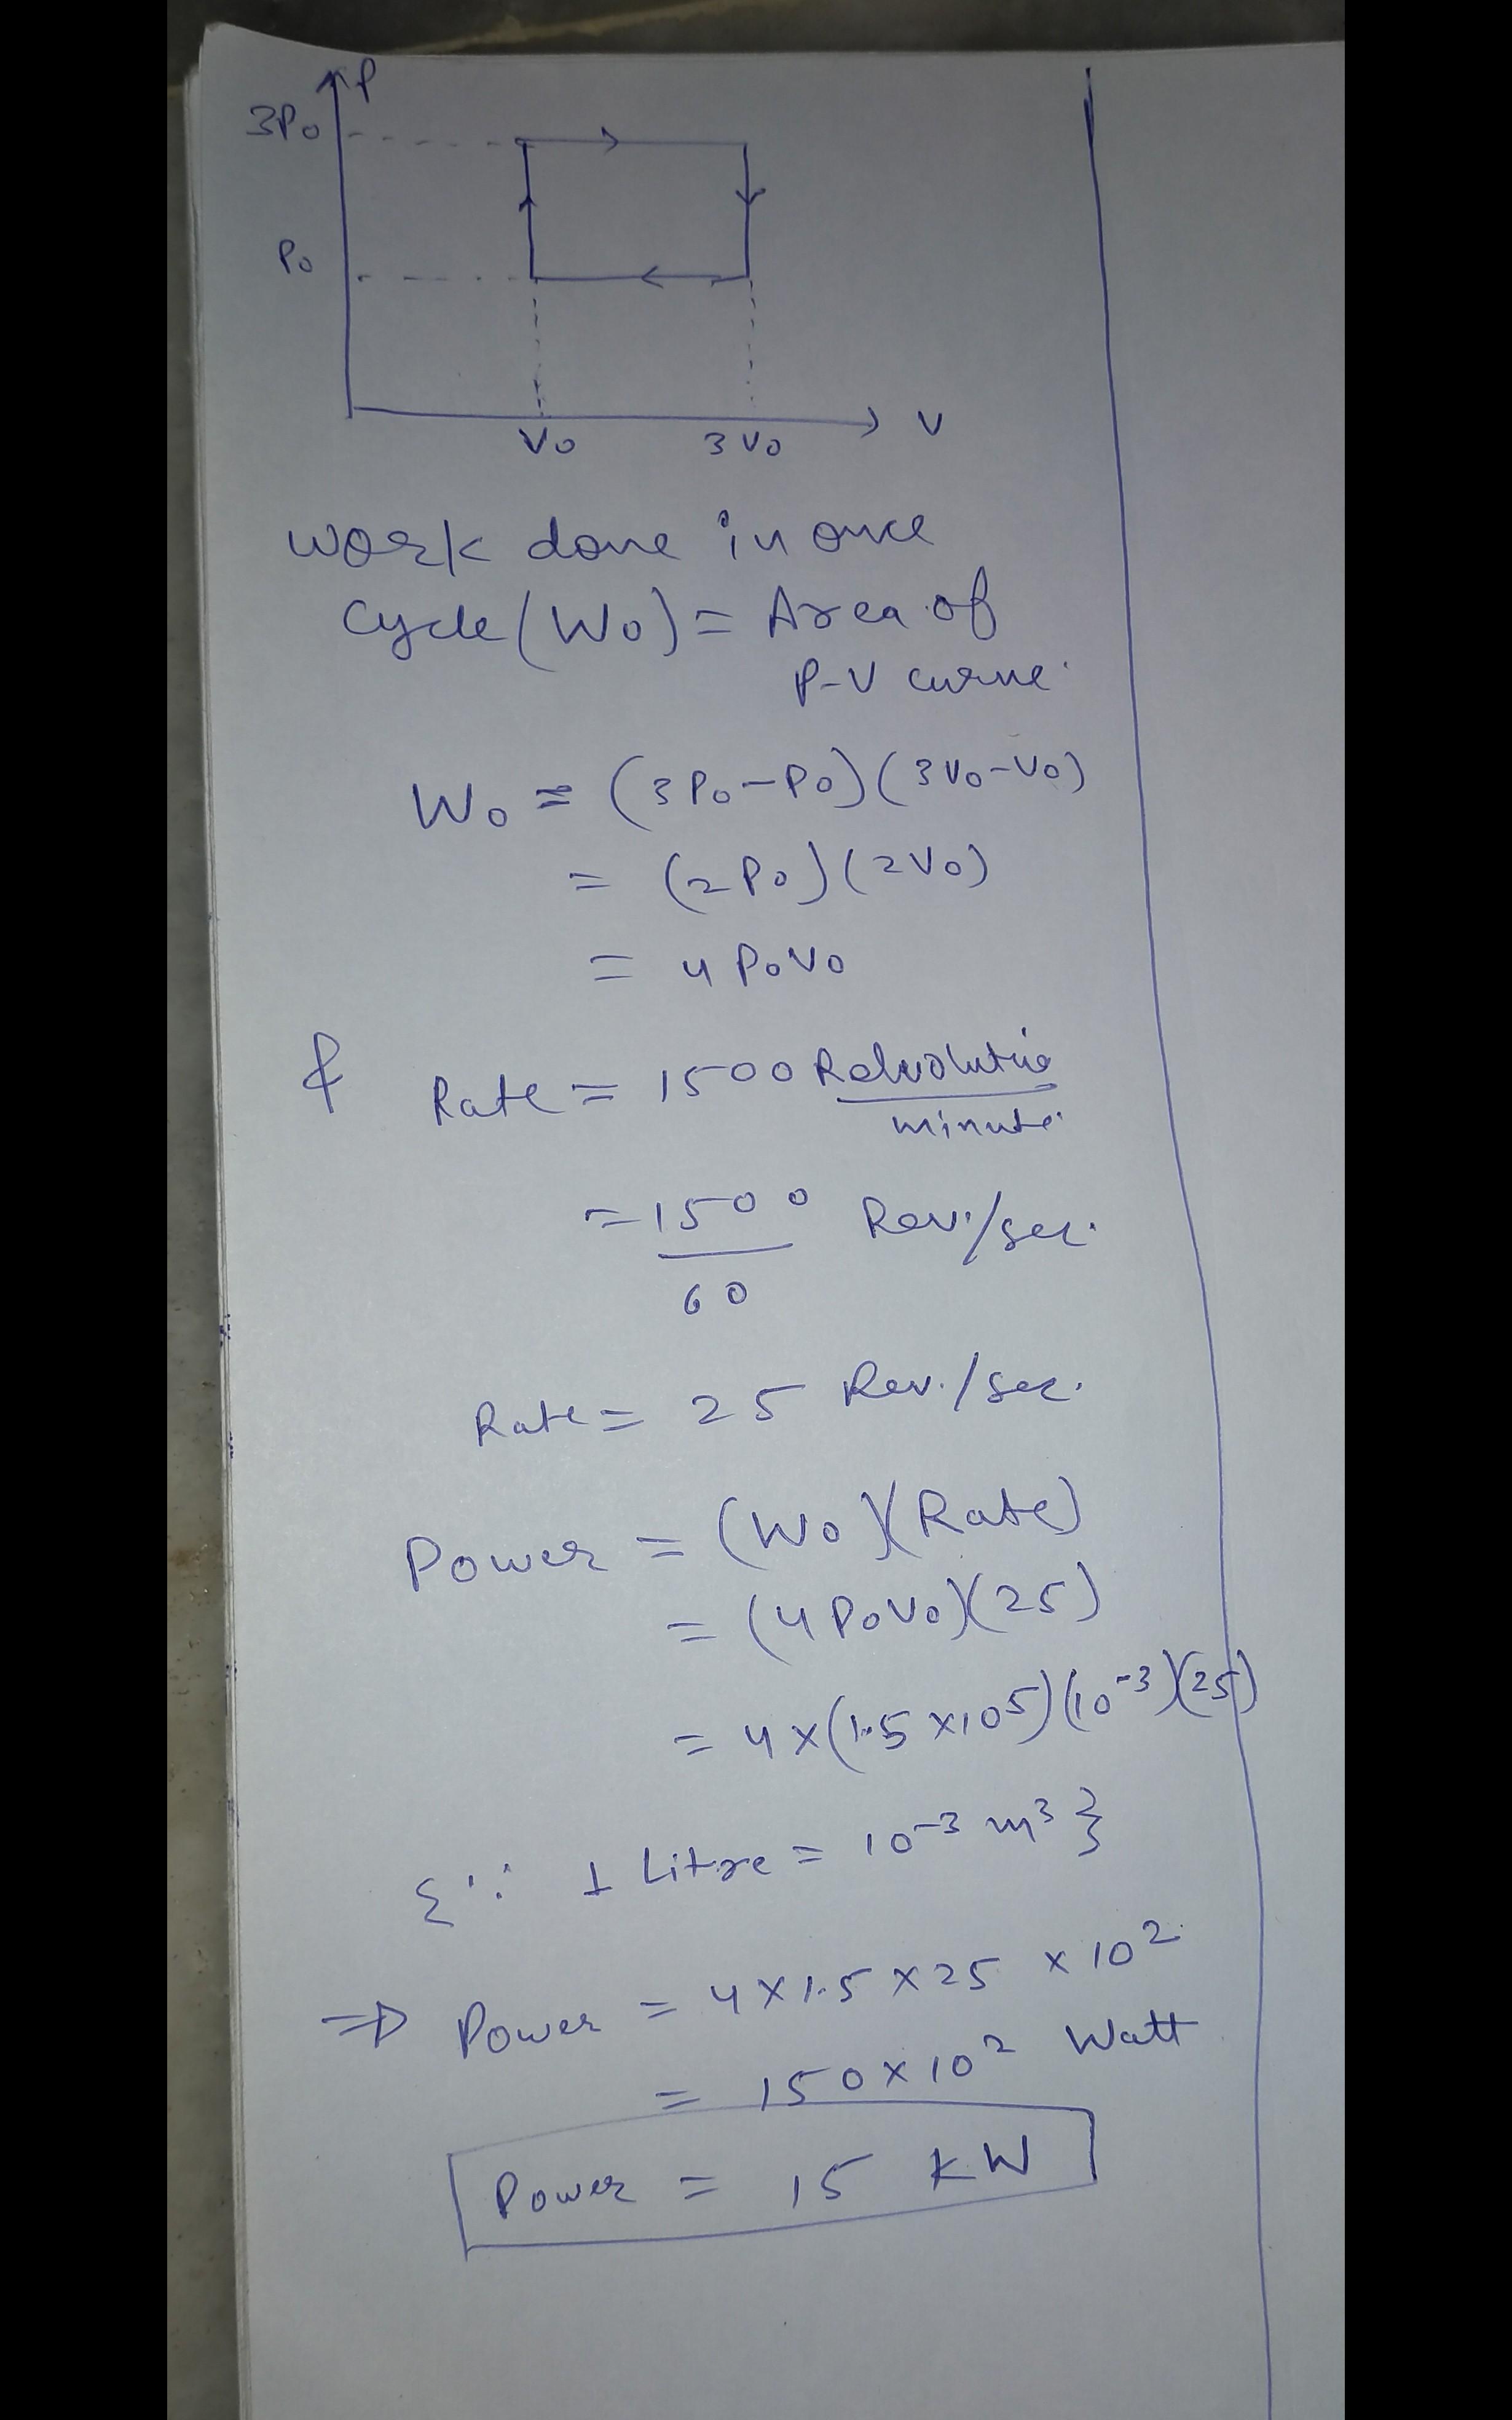 P
3P₀
P₀
V₀ 3V₀ V
Work done in once
Cycle (W₀) = Area of
P-V curve.
W₀ = (3P₀-P₀)(3V₀-V₀)
= (2P₀)(2V₀)
= 4P₀V₀
& Rate = 1500 Revolutio/minute
= 1500/60 Rev./sec.
Rate = 25 Rev./sec.
Power = (W₀)(Rate)
= (4P₀V₀)(25)
= 4×(1.5×10⁵)(10⁻³)(25)
{∵ 1 Litre = 10⁻³ m³}
⇒ Power = 4×1.5×25 ×10²
= 150×10² Watt
Power = 15 KW